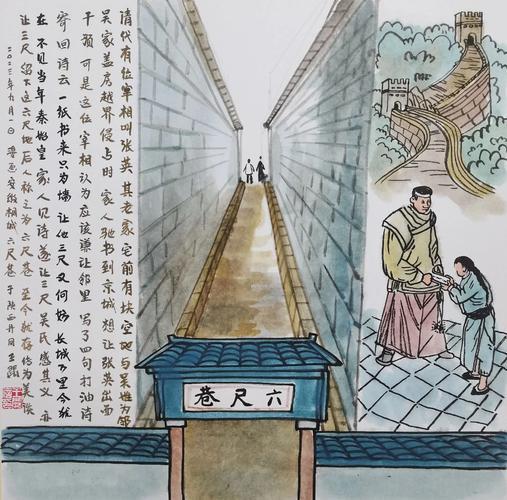 清代有位宰相叫张英 其老家宅前有块空地与吴姓为邻
吴家盖房越界侵占时 家人驰书到京城想让张英出面
干预 可是这位宰相认为应该谦让邻里 写了四句打油诗
寄回诗云 一纸书来只为墙 让他三尺又何妨 长城万里今犹
在 不见当年秦始皇 家人见诗遂让三尺 吴氏感其义 亦
让三尺 留下这六尺地 后人称之为六尺巷 至今犹存传为美谈
二〇二三年九月 日 安徽桐城六尺巷于陕西丹凤 王
六尺巷